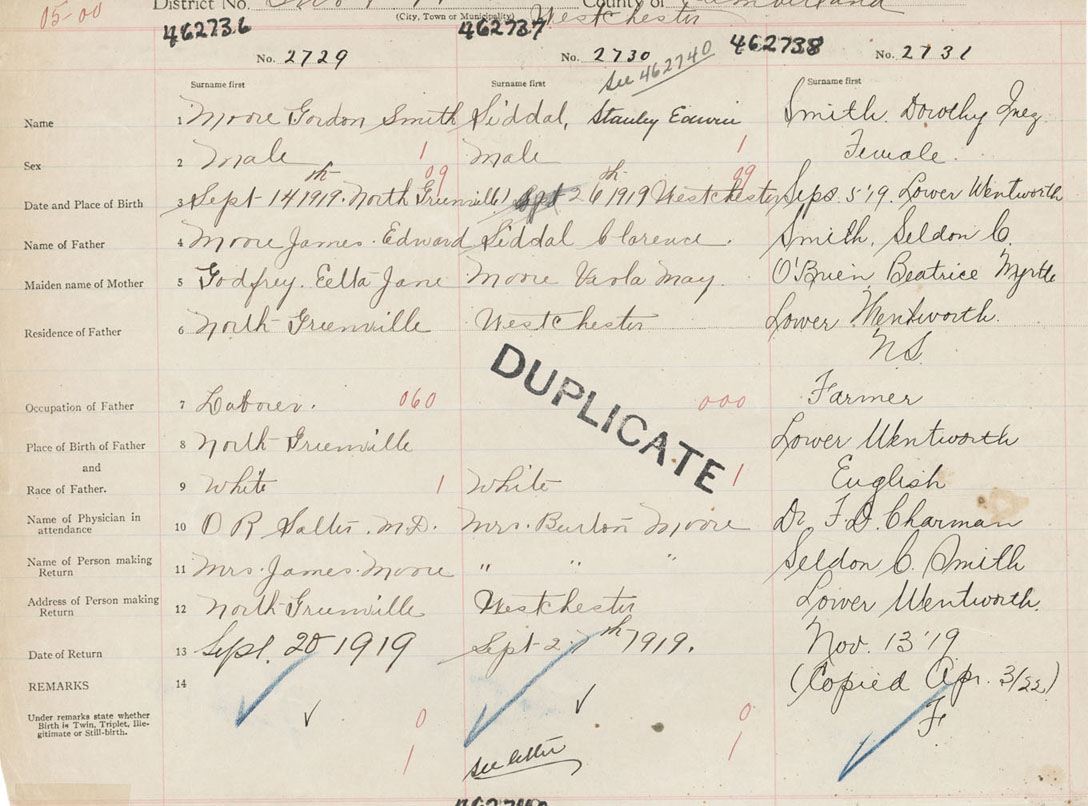 05-00
District No. County of Cumberland
(City, Town or Municipality) Westchester
462736 462737 462738
No. 2729 No. 2730 See 462740 No. 2731
Surname first Surname first Surname first
Name 1 Moore Gordon Smith Siddal, Stanley Edwin Smith Dorothy Inez
Sex 2 Male 1 Male 1 Female.
Date and Place of Birth 3 Sept 14th 1919. North Greenville 09 Sept 26th 1919 Westchester 99 Sept. 5'19. Lower Wentworth
Name of Father 4 Moore James. Edward Siddal Clarence. Smith, Seldon C.
Maiden name of Mother 5 Godfrey. Eella Jane Moore Varla May. O'Brien Beatrice Myrtle
Residence of Father 6 North Greenville Westchester Lower Wentworth.
N.S.
Occupation of Father 7 Laborer. 060 000 Farmer
DUPLICATE
Place of Birth of Father 8 North Greenville Lower Wentworth
and
Race of Father. 9 White 1 White 1 English
Name of Physician in
attendance 10 O R Salter. M.D. Mrs. Burton Moore Dr. F. D. Charman
Name of Person making
Return 11 Mrs. James. Moore " " " Seldon C. Smith
Address of Person making
Return 12 North Greenville Westchester Lower Wentworth.
Date of Return 13 Sept. 20 1919 Sept 27th 1919. Nov. 13'19
REMARKS 14 (Copied Apr. 3/22)
Under remarks state whether
Birth is Twin, Triplet, Ille-
gitimate or Still-birth. 0 0 F
1 See letter 1
462740